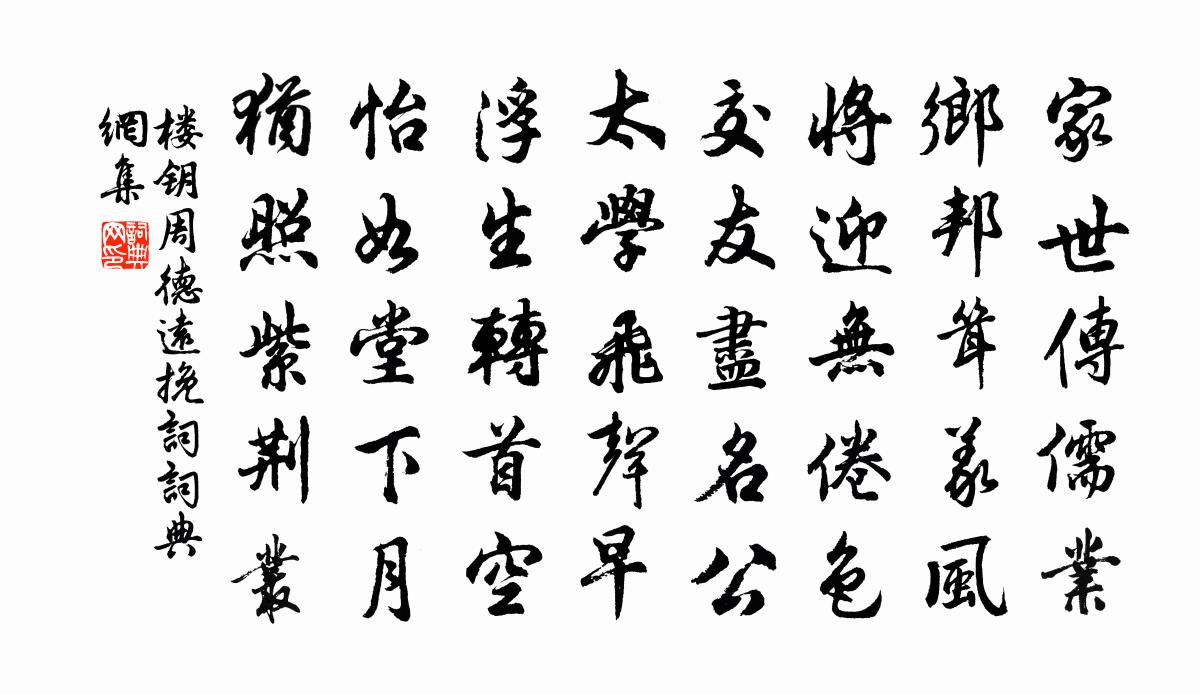 家世傳儒業
鄉邦聳義風
將迎無倦色
交友盡名公
太學飛聲早
浮生轉首空
怡如堂下月
猶照紫荆叢
楼钥周德遠挽詞詞典
網集
詞典
网印